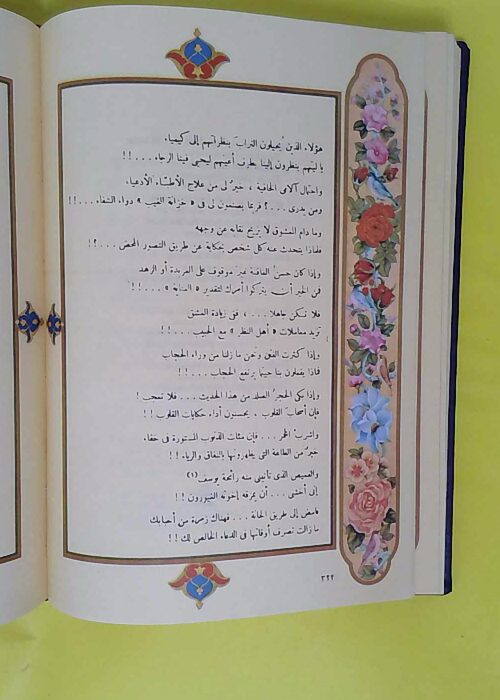 هؤلاء الذين يُحيلون الترابَ بنظرتهم إلى كيمياء.
يا ليتهم ينظرون إلينا بطرف أعينهم ليحيى فينا الرجاء...!!
واحتمال آلامى الخافية ، خيرٌ لى من علاج الأطباء الأدعياء
ومن يدرى...؟ فربما يصنعون لى فى « خزانة الغيب » دواء الشفاء...!!
وما دام المعشوق لا يزيح نقابه عن وجهه
فلماذا يتحدث عنه كل شخص بحكاية عن طريق التصور المحض...؟!
وإذا كان حسنُ العاقبة غير موقوف على العربدة أو الزهد
فمن الخير أن يتركوا أمرك لتقدير « العناية »...!!
فلا تكن جاهلا... ، ففى زيادة العشق
تزيد معاملات « أهل النظر » مع الحبيب...!!
وإذا كثرت الفتن ونحن ما زلنا من وراء الحجاب
فماذا يفعلون بنا حينما يرتفع الحجاب...!!
وإذا بكى الحجرُ الصلد من هذا الحديث... فلا تعجب !
فإن أصحاب القلوب ، يحسنون أداء حكايات القلوب !!
واشرب الخمر... فإن مئات الذنوب المستورة فى خفاء
خيرٌ من الطاعة التى يظهرونها بالنفاق والرياء !!
والقميص الذى تأتينى منه رائحة يوسف (١)
إنى أخشى... أن يمزقه إخوته الغيورون !!
فامض إلى طريق الحانة... فهناك زمرة من أحبابك
ما زالت تصرف أوقاتها فى الدعاء الخالص لك !!
٣٢٢